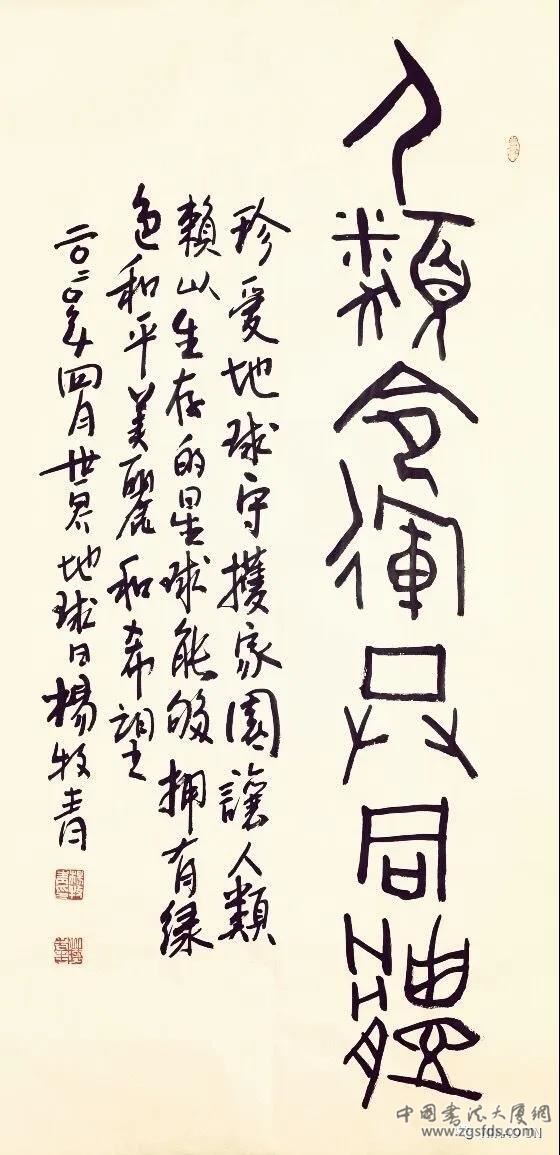 人類命運共同體
珍愛地球守擭家園讓人類
賴以生存的星球能够拥有緑
色和平美麗和希望
二〇二〇年四月世界地球日楊牧青
中國書法大厦網
www.zgsfds.com